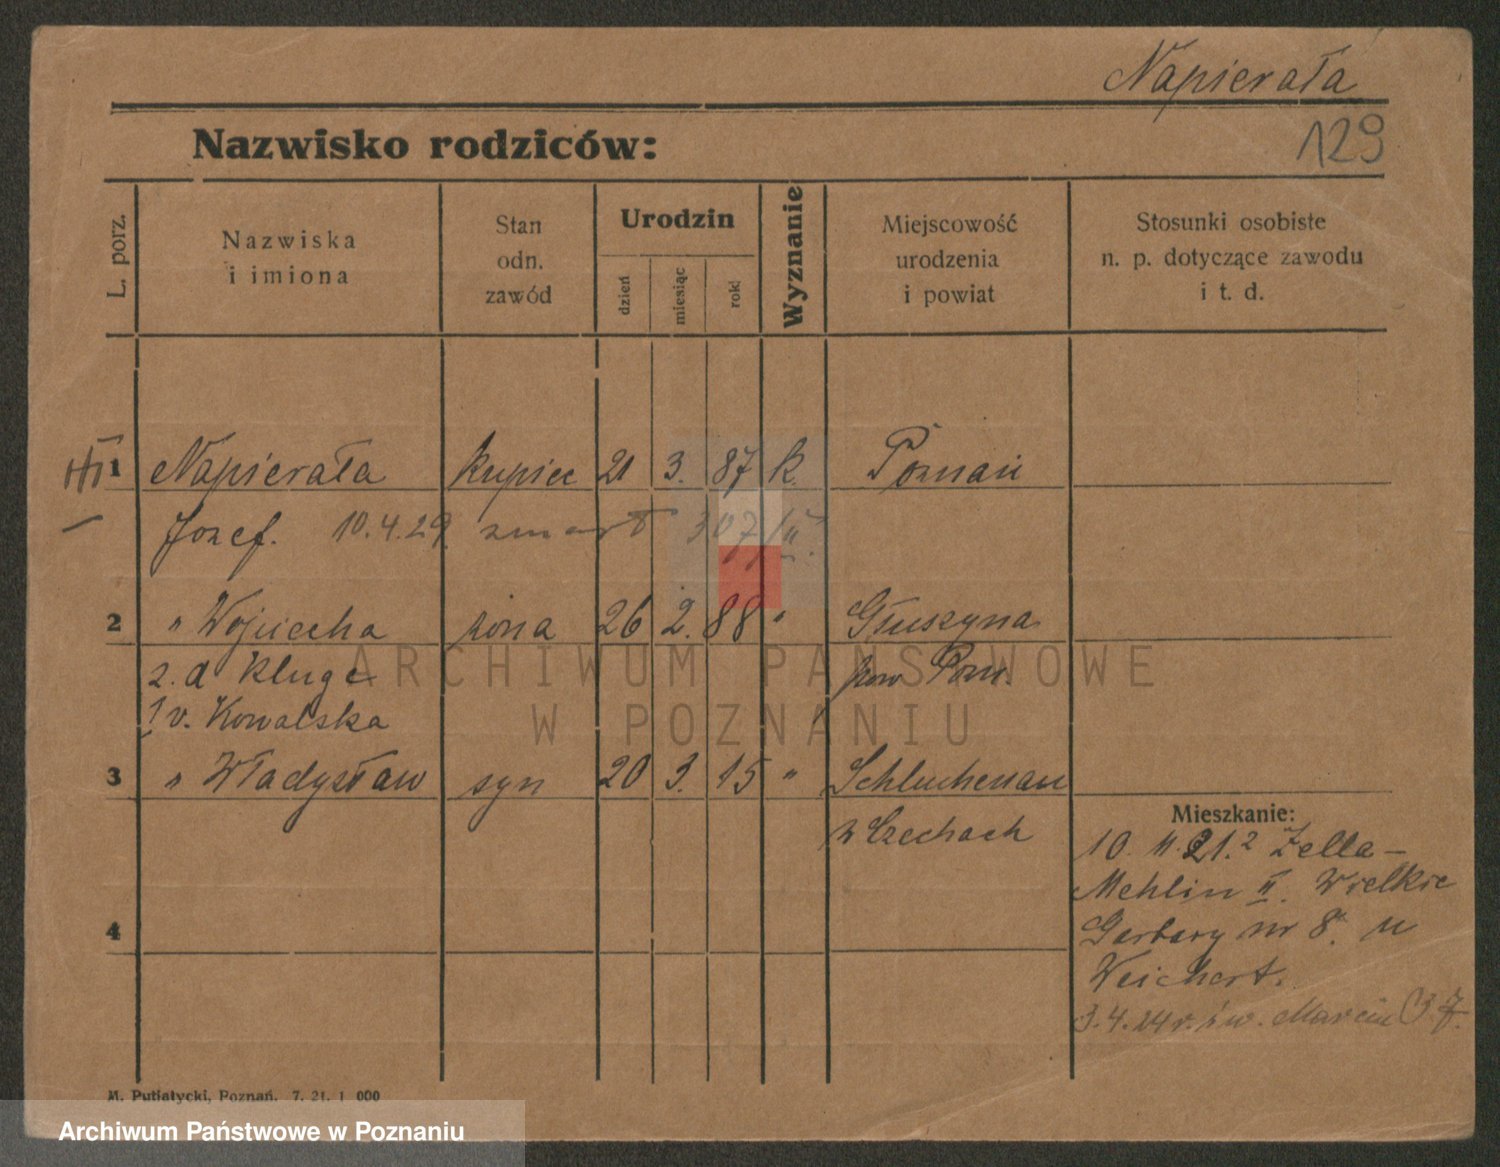 Napierała
129
Nazwisko rodziców:
L. porz.
Nazwiska
i imiona
Stan
odn.
zawód
Urodzin
dzień
miesiąc
rok
Wyznanie
Miejscowość
urodzenia
i powiat
Stosunki osobiste
n. p. dotyczące zawodu
i t. d.
1 Napierała kupiec 21 3. 87 k. Poznań
Józef. 10.4.29. zmarł 307/II.
2 " Wojciecha żona 26 2. 88 " Głuszyna
z. d Kluge pow Pozn.
1 v. Kowalska
3 " Władysław syn 20 3. 15 " Schluckenau
w Czechach
4
Mieszkanie:
10. 11. 21. z Zella-
Mehlin II. Wielkie
Garbary nr 8. u
Weichert.
3.4.24 r. św. Marcin 37.
M. Putiatycki, Poznań. 7. 21. 1 000
ARCHIWUM PAŃSTWOWE
W POZNANIU
Archiwum Państwowe w Poznaniu